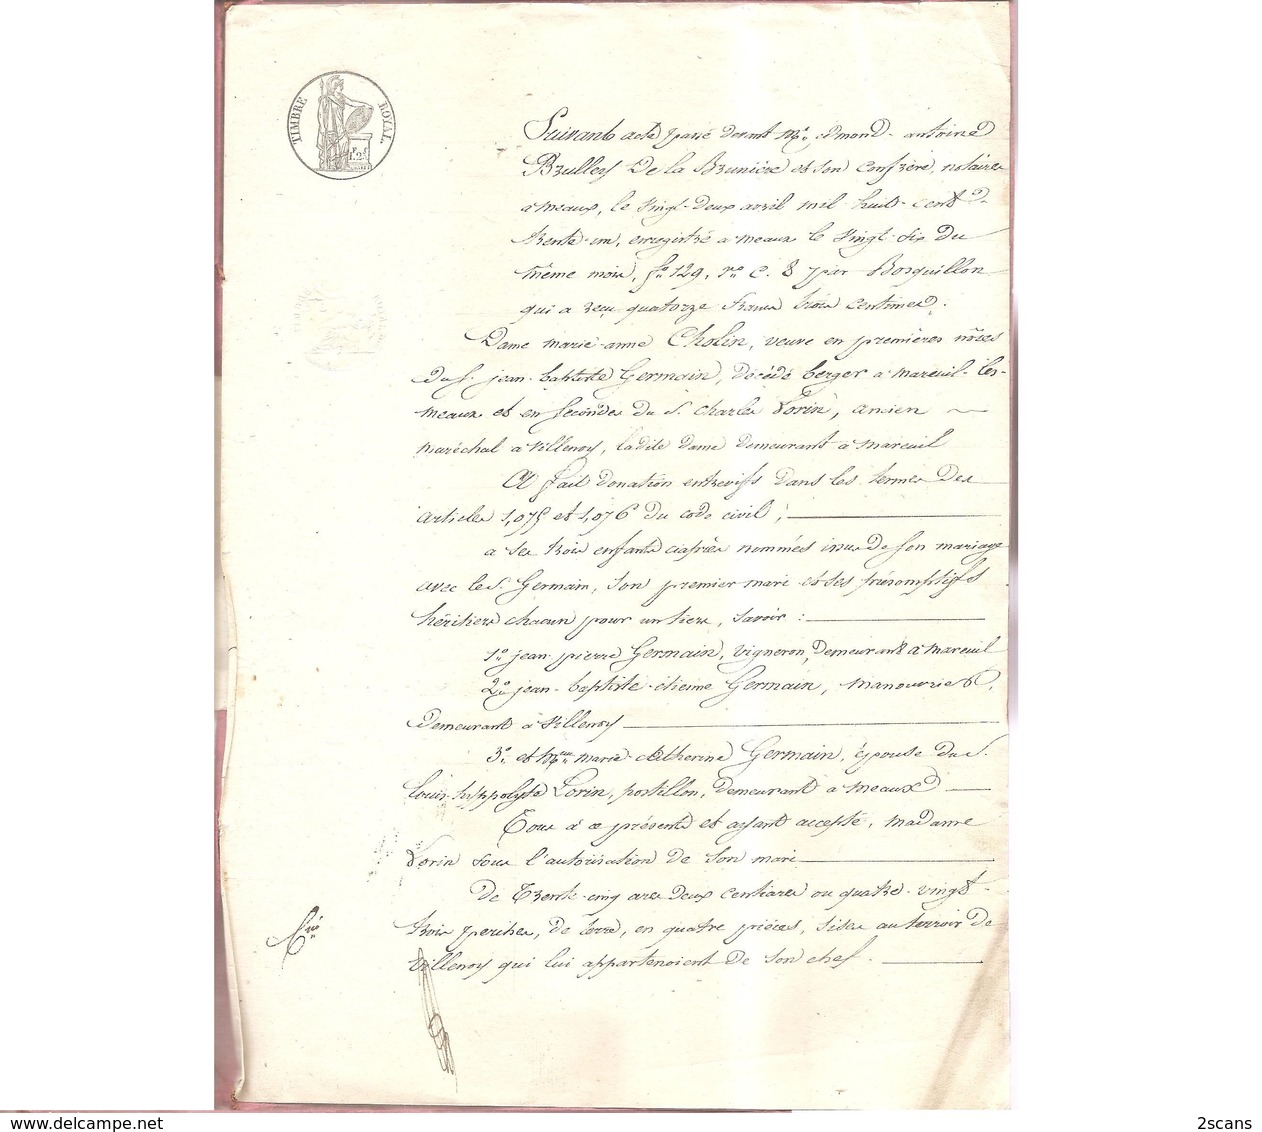 TIMBRE ROYAL.
Suivant acte passé devant Me. edmond-antoine
Brulley De la Brunière et son confrère, notaires
a meaux, le vingt-deux avril mil huit-cent
trente-un, enregistré a meaux le vingt-six du
même mois, fo. 129, ro. c. 8 par Bosquillon
qui a reçu quatorze francs trois centimes.
Dame marie-anne Cholin, veuve en premières nôces
du S. jean-baptiste Germain, décédé berger à mareuil-les-
meaux et en secondes du S. charles Lorin, ancien
maréchal a villenoy, ladite dame demeurant à mareuil
A fait donation entrevifs dans les termes des
articles 1,075 et 1,076 du code civil;
a ses trois enfants ciaprès nommés issus de son mariage
avec le S. Germain, son premier mari et ses présomptifs
héritiers chacun pour un tiers, savoir :
1o. jean-pierre Germain, vigneron, demeurant à mareuil
2o. jean-baptiste-étienne Germain, manouvrier,
demeurant à villenoy
3o. et marie-Catherine Germain, épouse du S.
louis-hippolyte Lorin, postillon, demeurant à meaux
Tous à ce présents et ayant accepté, madame
Lorin sous l'autorisation de son mari
de Trente-cinq ares deux centiares ou quatre-vingt-
trois perches, de terre, en quatre pièces, sises au terroir de
villenoy qui lui appartenoient de son chef.
2scans